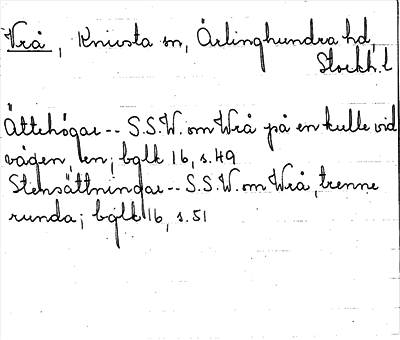 Vrå, Knivsta sn, Ärlinghundra hd,
Stockh.l
Ättehögar -- S.S.W. om Wrå på en kulle vid
vägen, en; bglk 16, s.49
Stensättningar -- S.S.W. om Wrå, trenne
runda; bglk 16, s.51